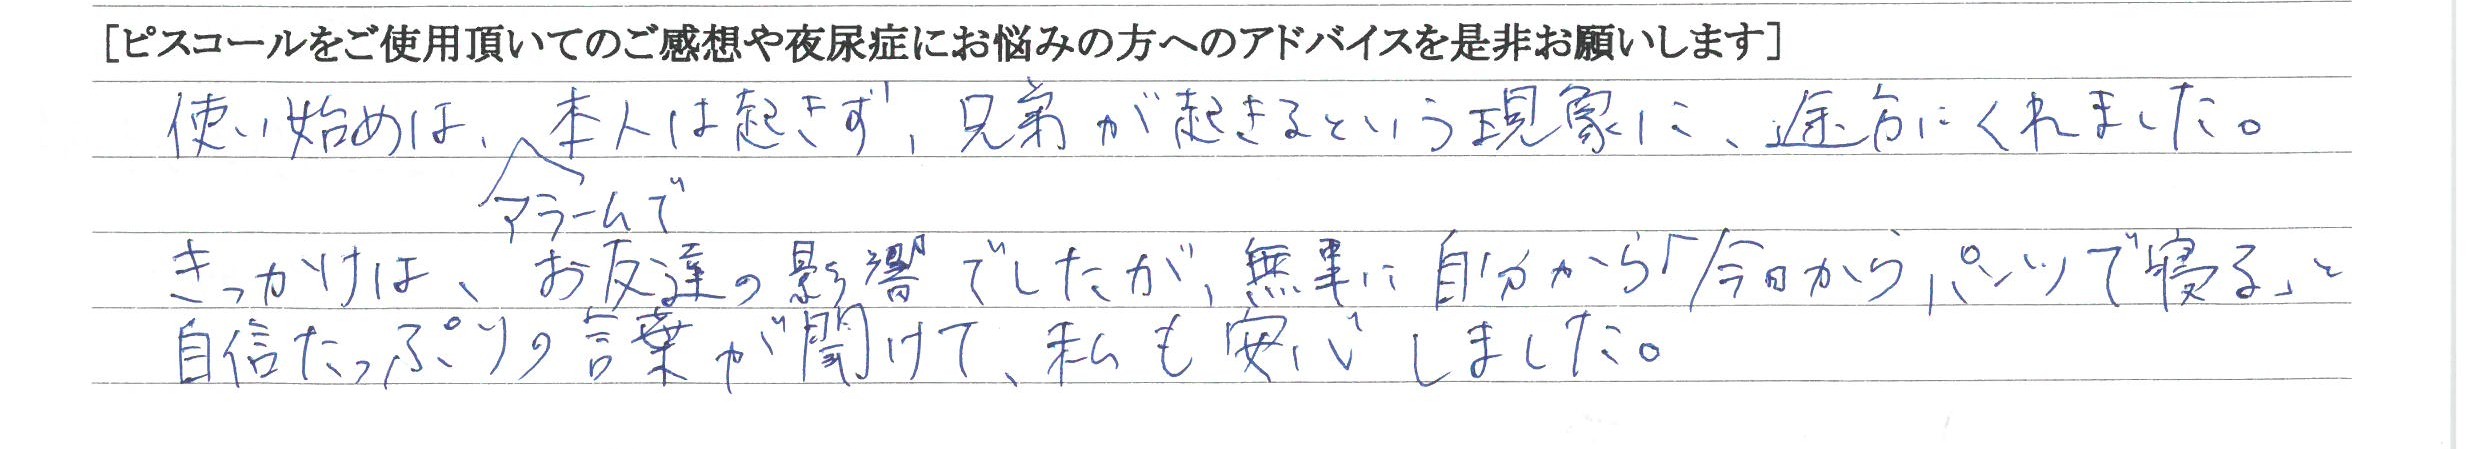 [ピスコールをご使用頂いてのご感想や夜尿症にお悩みの方へのアドバイスを是非お願いします]
使い始めは、本人は起きず、兄弟が起きるという現象に、途方にくれました。
アラームで
きっかけは、お友達の影響でしたが、無事に自分から「今日からパンツで寝る」と
自信たっぷりの言葉が聞けて、私も安心しました。